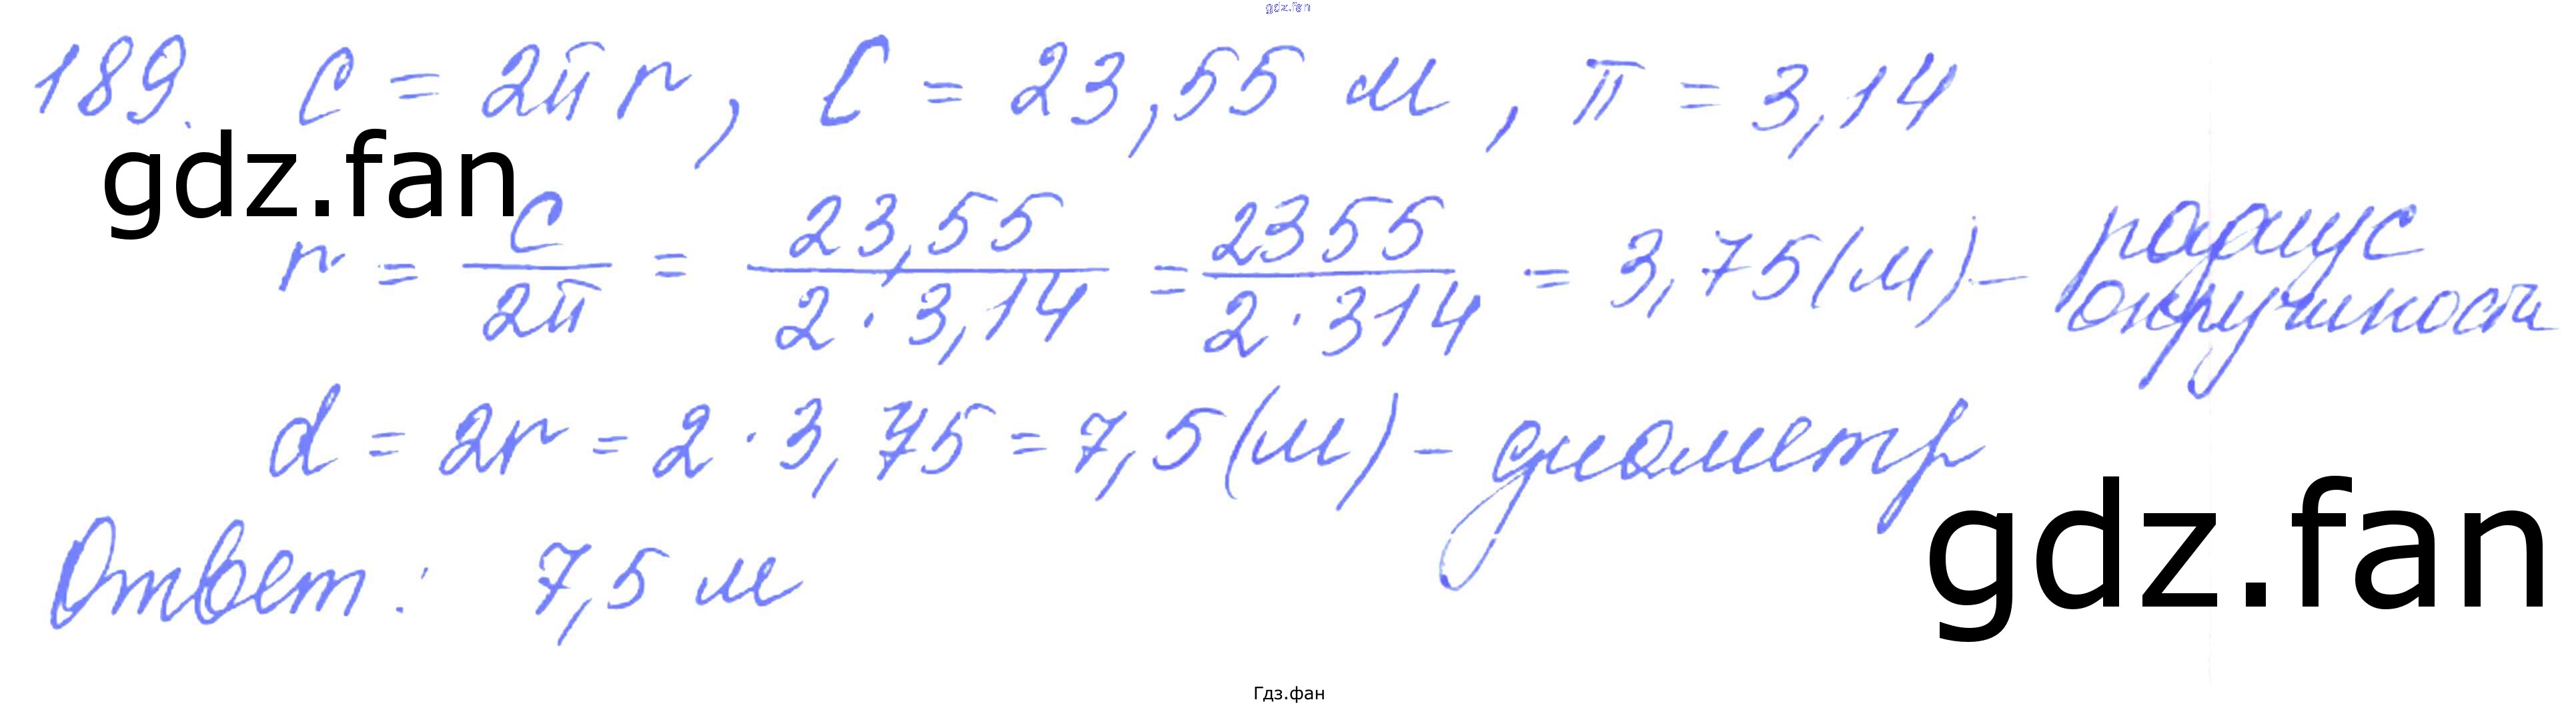 gdz.fan
189. C = 2πr, C = 23,55 м, π = 3,14
gdz.fan
r = C/2π = 23,55/2·3,14 = 2355/2·314 = 3,75(м) – радиус окружности
d = 2r = 2·3,75 = 7,5(м) – диаметр
Ответ: 7,5 м
gdz.fan
Гдз.фан